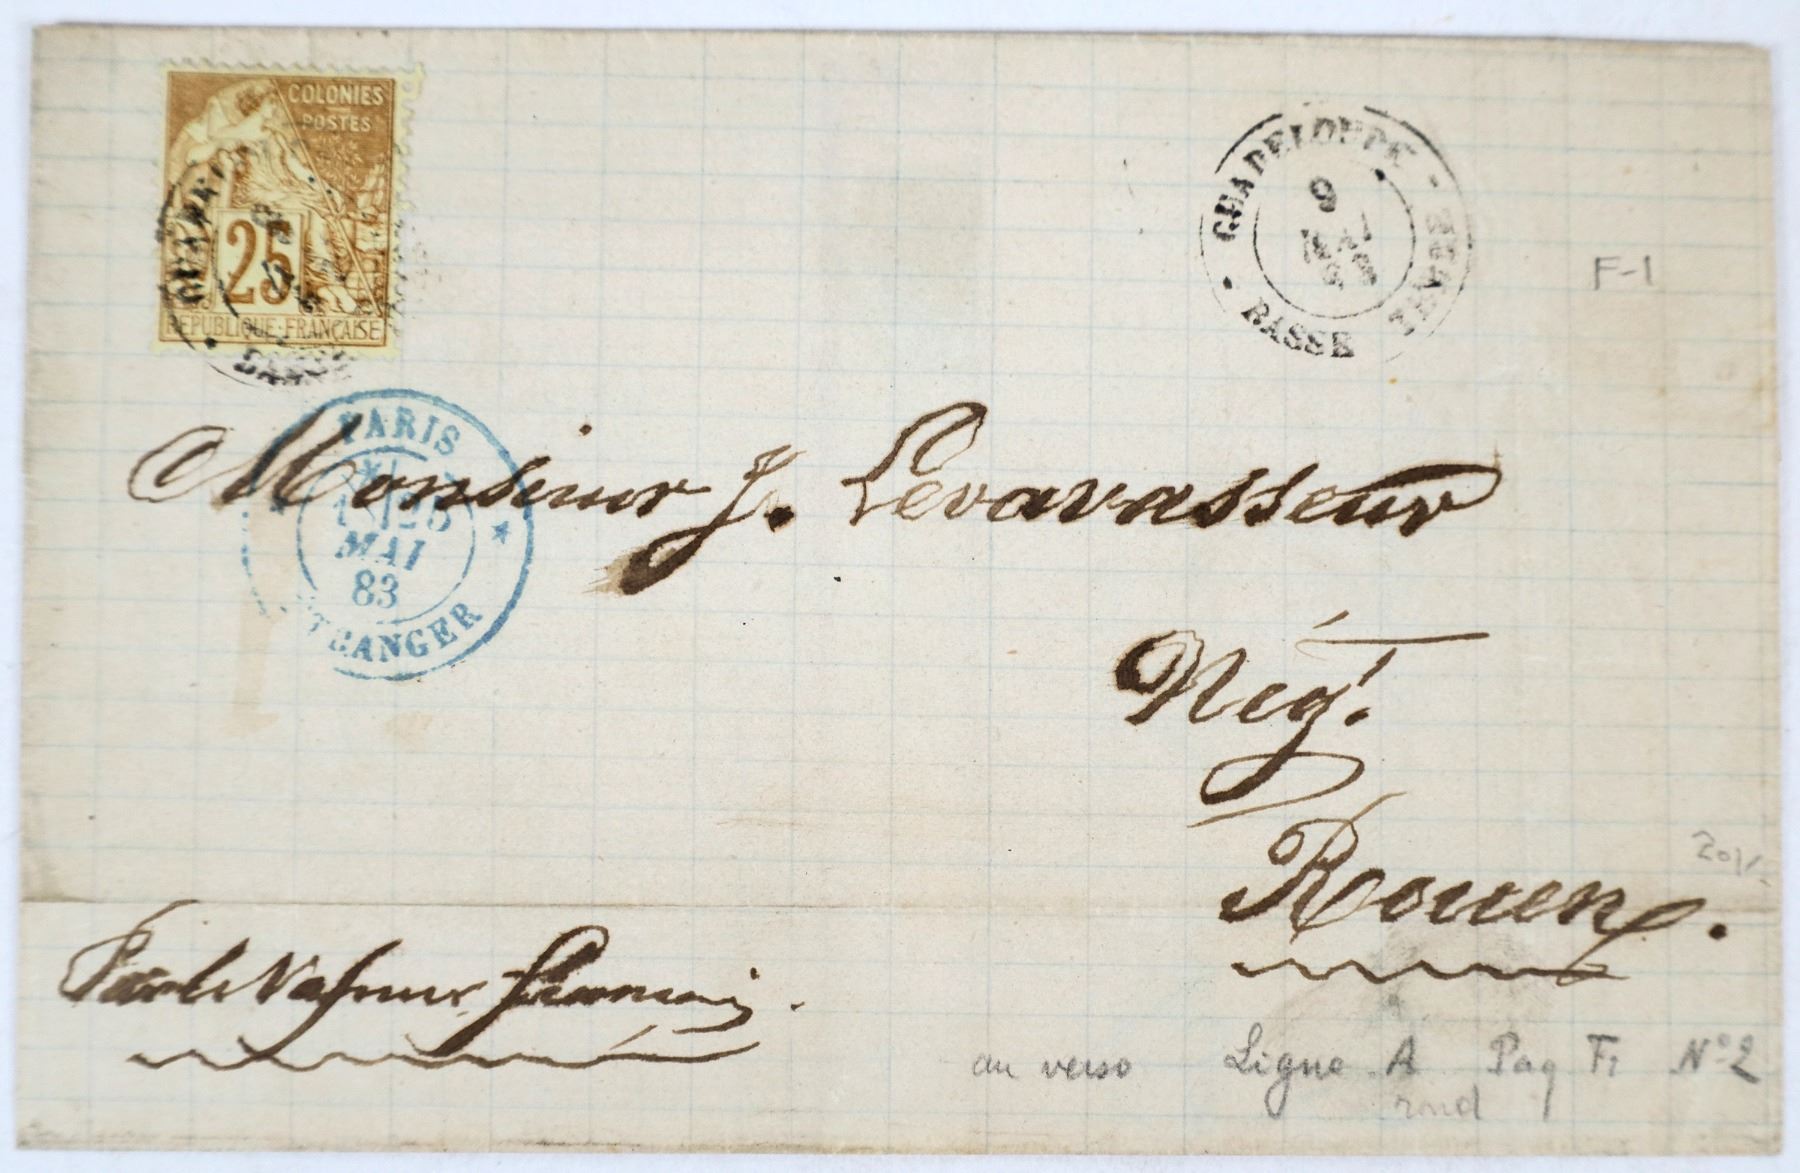 COLONIES
POSTES
25
REPUBLIQUE FRANÇAISE
GUADELOUPE
BASSE
GUADELOUPE - BASSE TERRE
9
MAI
83
F-1
PARIS
MAI
83
ETRANGER
Monsieur J. Levavasseur
Négt.
Rouen.
Par le Vapeur français.
au verso Ligne A Paq Fr N°2
rond